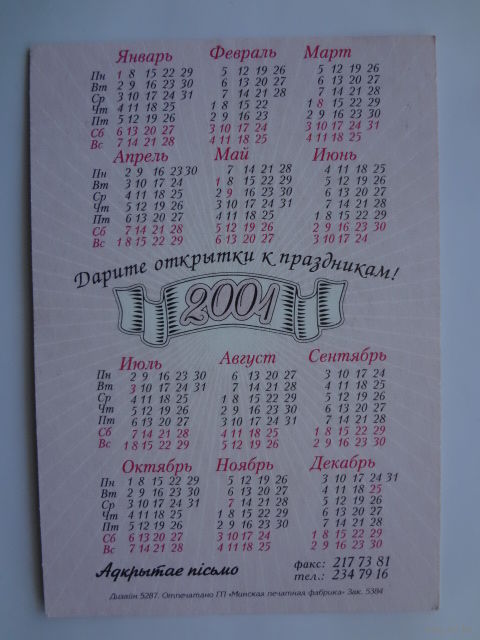 Январь Февраль Март
Пн 1 8 15 22 29 5 12 19 26 5 12 19 26
Вт 2 9 16 23 30 6 13 20 27 6 13 20 27
Ср 3 10 17 24 31 7 14 21 28 7 14 21 28
Чт 4 11 18 25 1 8 15 22 1 8 15 22 29
Пт 5 12 19 26 2 9 16 23 2 9 16 23 30
Сб 6 13 20 27 3 10 17 24 3 10 17 24 31
Вс 7 14 21 28 4 11 18 25 4 11 18 25
Апрель Май Июнь
Пн 2 9 16 23 30 7 14 21 28 4 11 18 25
Вт 3 10 17 24 1 8 15 22 29 5 12 19 26
Ср 4 11 18 25 2 9 16 23 30 6 13 20 27
Чт 5 12 19 26 3 10 17 24 31 7 14 21 28
Пт 6 13 20 27 4 11 18 25 1 8 15 22 29
Сб 7 14 21 28 5 12 19 26 2 9 16 23 30
Вс 1 8 15 22 29 6 13 20 27 3 10 17 24
Дарите открытки к праздникам!
2001
Июль Август Сентябрь
Пн 2 9 16 23 30 6 13 20 27 3 10 17 24
Вт 3 10 17 24 31 7 14 21 28 4 11 18 25
Ср 4 11 18 25 1 8 15 22 29 5 12 19 26
Чт 5 12 19 26 2 9 16 23 30 6 13 20 27
Пт 6 13 20 27 3 10 17 24 31 7 14 21 28
Сб 7 14 21 28 4 11 18 25 1 8 15 22 29
Вс 1 8 15 22 29 5 12 19 26 2 9 16 23 30
Октябрь Ноябрь Декабрь
Пн 1 8 15 22 29 5 12 19 26 3 10 17 24 31
Вт 2 9 16 23 30 6 13 20 27 4 11 18 25
Ср 3 10 17 24 31 7 14 21 28 5 12 19 26
Чт 4 11 18 25 1 8 15 22 29 6 13 20 27
Пт 5 12 19 26 2 9 16 23 30 7 14 21 28
Сб 6 13 20 27 3 10 17 24 1 8 15 22 29
Вс 7 14 21 28 4 11 18 25 2 9 16 23 30
Адкрытае пiсьмо
факс: 217 73 81
тел.: 234 79 16
Дизайн 5287. Отпечатано ГП «Минская печатная фабрика» Зак. 5384